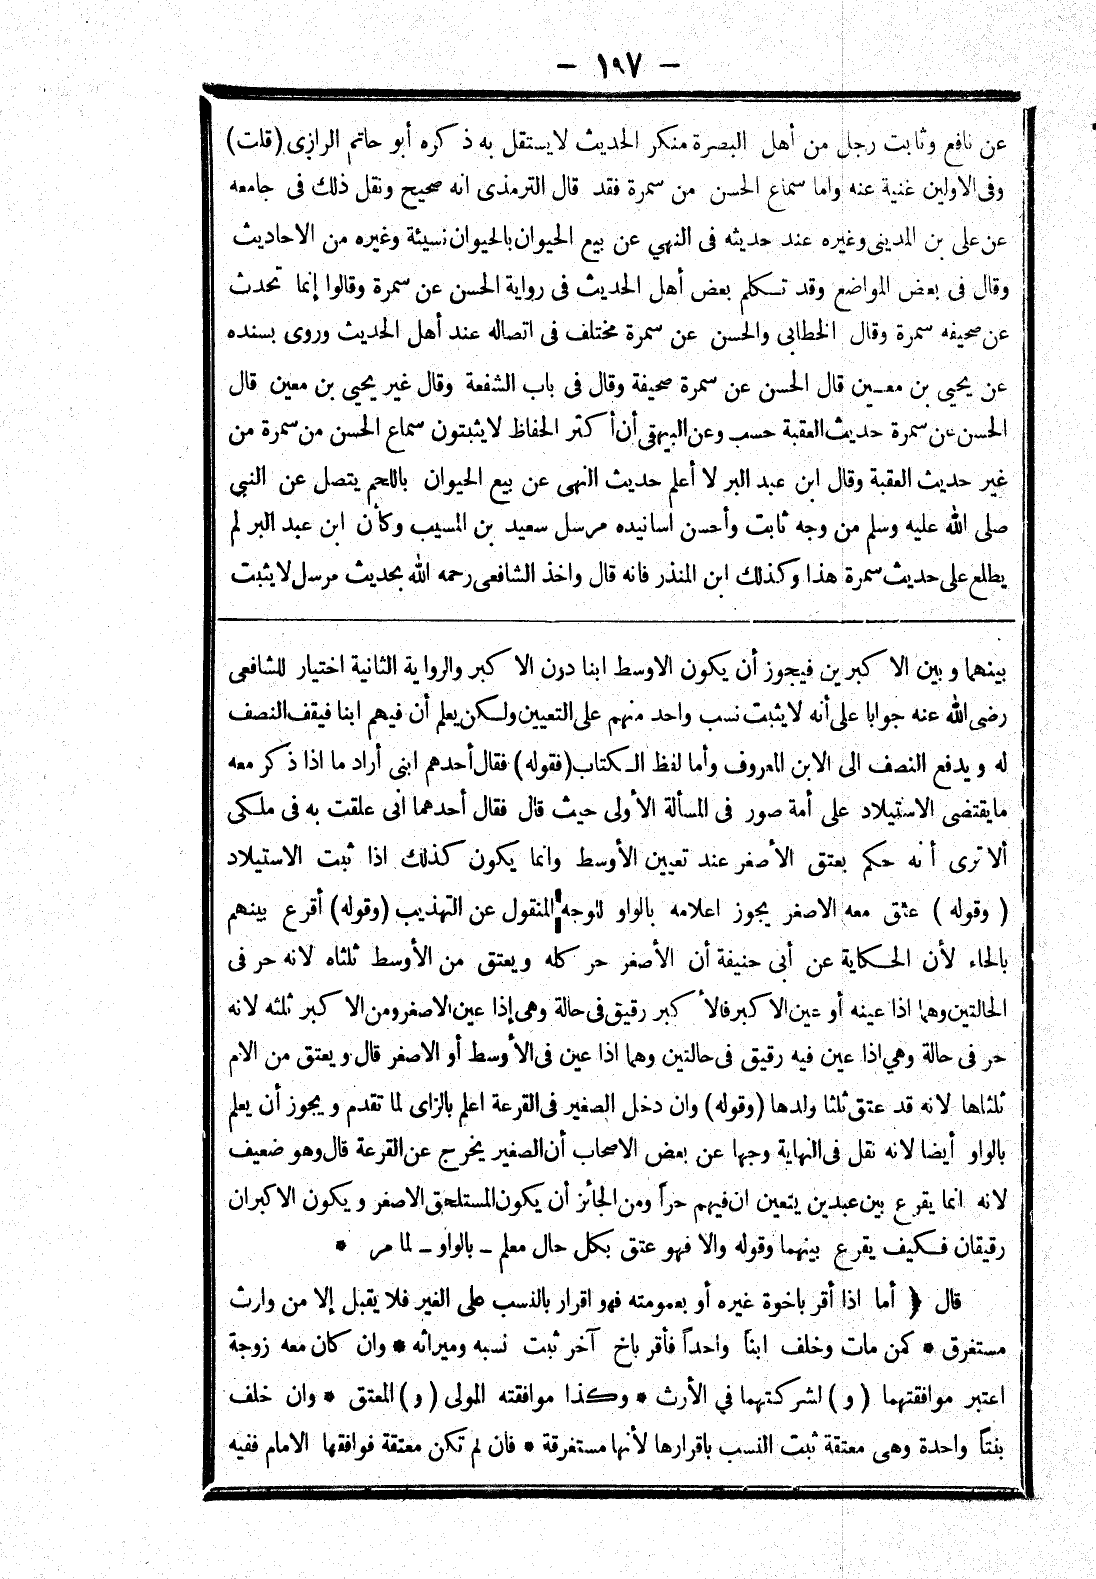 - ١٩٧ -
عن نافع وثابت رجل من أهل البصرة منكر الحديث لايستقل به ذكره أبو حاتم الرازى (قلت)
وفى الاولين غنية عنه واما سماع الحسن من سمرة فقد قال الترمذى انه صحيح ونقل ذلك فى جامعه
عن على بن المدينى وغيره عند حديثه فى النهي عن بيع الحيوان بالحيوان نسيئة وغيره من الاحاديث
وقال فى بعض المواضع وقد تكلم بعض أهل الحديث فى رواية الحسن عن سمرة وقالوا إنما تحدث
عن صحيفه سمرة وقال الخطابى والحسن عن سمرة مختلف فى اتصاله عند أهل الحديث وروى بسنده
عن يحيى بن معين قال الحسن عن سمرة صحيفة وقال فى باب الشفعة وقال غير يحيي بن معين قال
الحسن عن سمرة حديث العقبة حسب وعن البيهقى أن أكثر الحفاظ لايثبتون سماع الحسن من سمرة من
غير حديث العقبة وقال ابن عبد البر لا أعلم حديث النهى عن بيع الحيوان باللحم يتصل عن النبي
صلى الله عليه وسلم من وجه ثابت وأحسن اسانيده مرسل سعيد بن المسيب وكأن ابن عبد البر لم
يطلع على حديث سمرة هذا وكذلك ابن المنذر فانه قال واخذ الشافعى رحمه الله بحديث مرسل لايثبت
بينهما وبين الاكبرين فيجوز أن يكون الاوسط ابنا دون الاكبر والرواية الثانية اختيار للشافعى
رضى الله عنه جوابا على أنه لايثبت نسب واحد منهم على التعيين ولكن يعلم أن فيهم ابنا فيقف النصف
له ويدفع النصف الى الابن المعروف وأما لفظ الكتاب (فقوله) فقال أحدهم ابنى أراد ما اذا ذكر معه
مايقتضى الاستيلاد على أمة صور فى المسألة الأولى حيث قال فقال أحدهما انى علقت به فى ملكى
ألا ترى أنه حكم بعتق الأصغر عند تعيين الأوسط وانما يكون كذلك اذا ثبت الاستيلاد
(وقوله) عتق معه الاصغر يجوز اعلامه بالواو للوجه المنقول عن التهذيب (وقوله) أقرع بينهم
بالحاء لأن الحكاية عن أبى حنيفة أن الأصغر حر كله ويعتق من الأوسط ثلثاه لانه حر فى
الحالتين وهما اذا عينه أو عين الاكبر فالأكبر رقيق فى حالة وهى إذا عين الاصغر ومن الاكبر ثلثه لانه
حر فى حالة وهي اذا عين فيه رقيق فى حالتين وهما اذا عين فى الأوسط أو الاصغر قال ويعتق من الام
ثلثاها لانه قد عتق ثلثا ولدها (وقوله) وان دخل الصغير فى القرعة اعلم بالزاى لما تقدم ويجوز أن يعلم
بالواو أيضا لانه نقل فى النهاية وجها عن بعض الاصحاب أن الصغير يخرج عن القرعة قال وهو ضعيف
لانه انما يقرع بين عبدين يتعين ان فيهم حراً ومن الجائز أن يكون المستلحق الاصغر ويكون الاكبران
رقيقان فكيف يقرع بينهما وقوله والا فهو عتق بكل حال معلم – بالواو – لما مر *
قال ﴿ أما اذا أقر باخوة غيره أو بعمومته فهو اقرار بالنسب على الغير فلا يقبل إلا من وارث
مستغرق * كمن مات وخلف ابناً واحداً فأقر باخ آخر ثبت نسبه وميراثه * وان كان معه زوجة
اعتبر موافقتهما (و) لشركتهما في الأرث * وكذا موافقته المولى (و) المعتق * وان خلف
بنتاً واحدة وهى معتقة ثبت النسب باقرارها لأنها مستغرقة * فان لم تكن معتقة فوافقها الامام ففيه